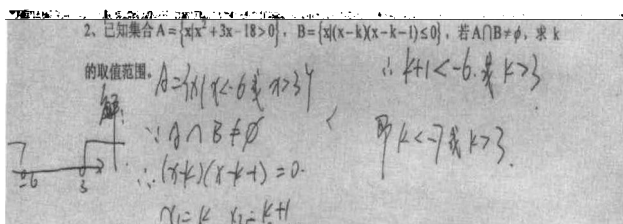 2、已知集合A={x|x²+3x-18>0}，B={x|(x-k)(x-k-1)≤0}，若A∩B≠ϕ，求 k
的取值范围。
解：A={x|x<-6或x>3}
∵A∩B≠∅
∴(x-k)(x-k-1)=0.
x₁=k x₂=k+1
-6 3
∴k+1<-6.或k>3
即k<-7或k>3.